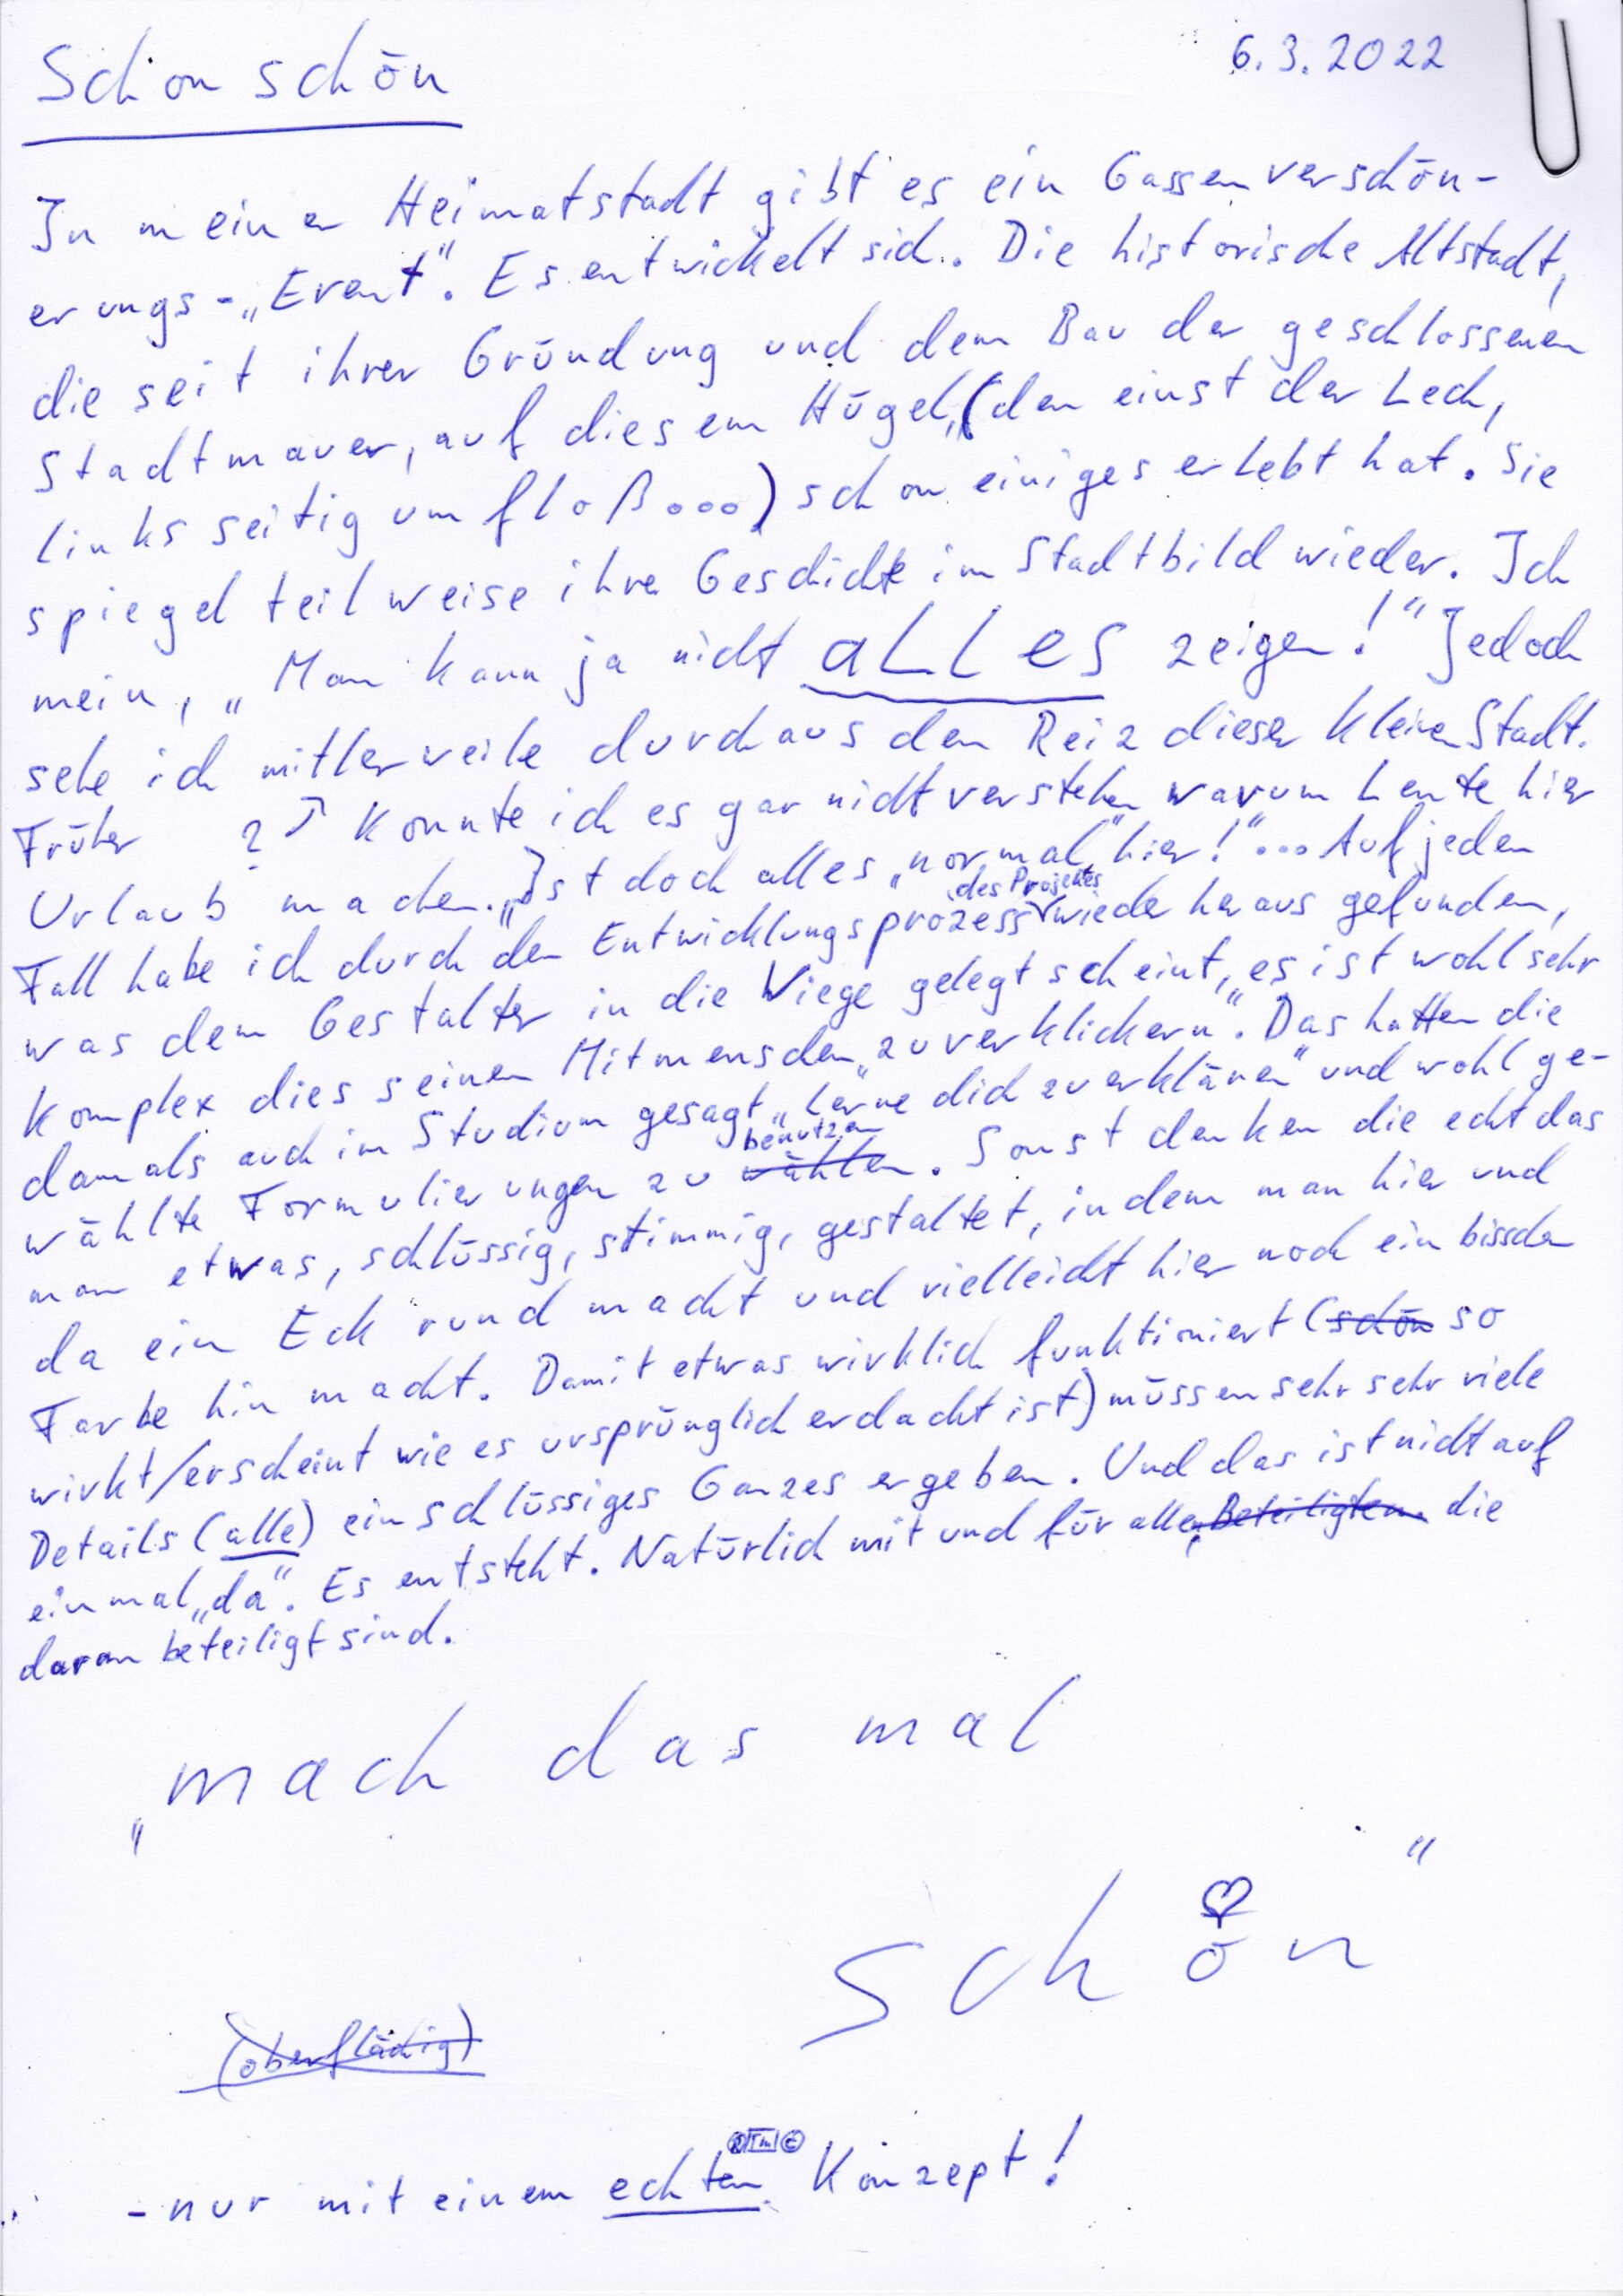 Schon schön
6.3.2022
In meiner Heimatstadt gibt es ein Gassenverschön-
erungs-„Event". Es entwickelt sich. Die historische Altstadt,
die seit ihrer Gründung und dem Bau der geschlossenen
Stadtmauer, auf diesem Hügel, (den einst der Lech,
linksseitig umfloß...) schon einiges erlebt hat. Sie
spiegel teilweise ihre Geschichte im Stadtbild wieder. Ich
mein, „Man kann ja nicht aLLes zeigen!" Jedoch
sehe ich mitlerweile durchaus den Reiz dieser kleinen Stadt.
Früher ? konnte ich es gar nicht verstehen warum Leute hier
Urlaub machen. „Ist doch alles „normal" hier!"... Auf jeden
des Projektes
Fall habe ich durch den Entwicklungsprozess wieder herausgefunden,
was dem Gestalter in die Wiege gelegt scheint, „es ist wohl sehr
komplex dies seinen Mitmenschen „zu verklickern". Das hatten die
damals auch im Studium gesagt „Lerne dich zu erklären" und wohl ge-
benutzen
wählte Formulierungen zu wählen. Sonst denken die echt das
man etwas, schlüssig, stimmig, gestaltet, indem man hier und
da ein Eck rund macht und vielleicht hier noch ein bisschen
Farbe hin macht. Damit etwas wirklich funktioniert (schön so
wirkt/erscheint wie es ursprünglich erdacht ist) müssen sehr sehr viele
Details (alle) ein schlüssiges Ganzes ergeben. Und das ist nicht auf
einmal „da". Es entsteht. Natürlich mit und für alle, Beteiligten. die
daran beteiligt sind.
„mach das mal
schön"
(oberflächig)
® TM ©
- nur mit einem echten Konzept!